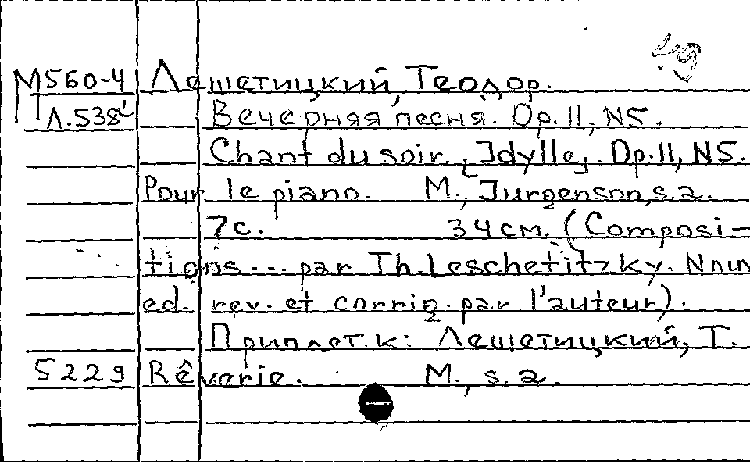 М560-4 Лешетицкий, Теодор.
Л.538 Вечерняя песня. Op.11, N5.
Chant du soir [Idylle]. Op.11, N5.
Pour le piano. M., Jurgenson, s.a.
7с. 34см. (Composi-
tions... par Th. Leschetitzky. Nouv
ed. rev. et corrig. par l'auteur).
Приплет. к: Лешетицкий, Т.
5229 Rêverie. M., s.a.